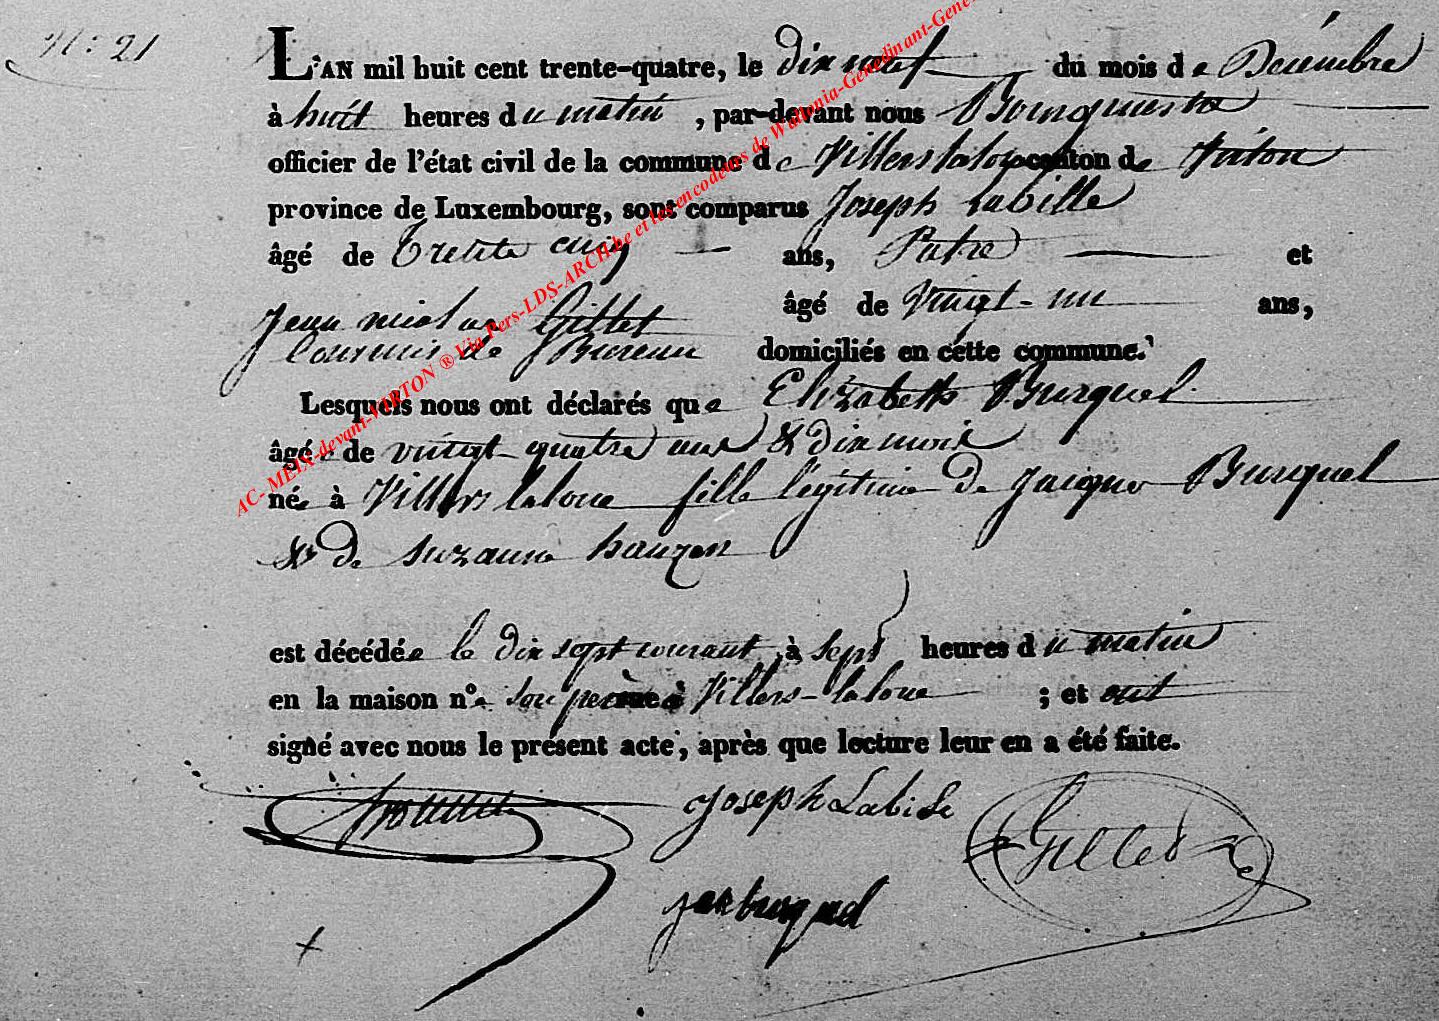 N.º 21
L'AN mil huit cent trente-quatre, le dix neuf du mois de Décémbre
à huit heures du matin, par-devant nous Bourguemestre
officier de l'état civil de la commune de Villers laloue canton de Virton
province de Luxembourg, sont comparus Joseph Labille
âgé de Trente cinq ans, Patre et
Jean nicolas Gillet âgé de vingt-un ans,
Commis de Bureau domiciliés en cette commune.
Lesquels nous ont déclarés que Elizabeth Burquel
âgée de vingt-quatre ans & dix mois
née à Villers laloue fille légitime de Jacques Burquel
& de suzanne hauzen
est décédée le dix sept courant, à sept heures du matin
en la maison de son père à Villers-laloue ; et ont
signé avec nous le présent acte, après que lecture leur en a été faite.
Joseph Labile
Gillet
Jac burquel
AC-MEIX-devant-VIRTON ® Via Pers-LDS-ARCH.be et les encodeurs de Wallonia-Genedinant-Gene